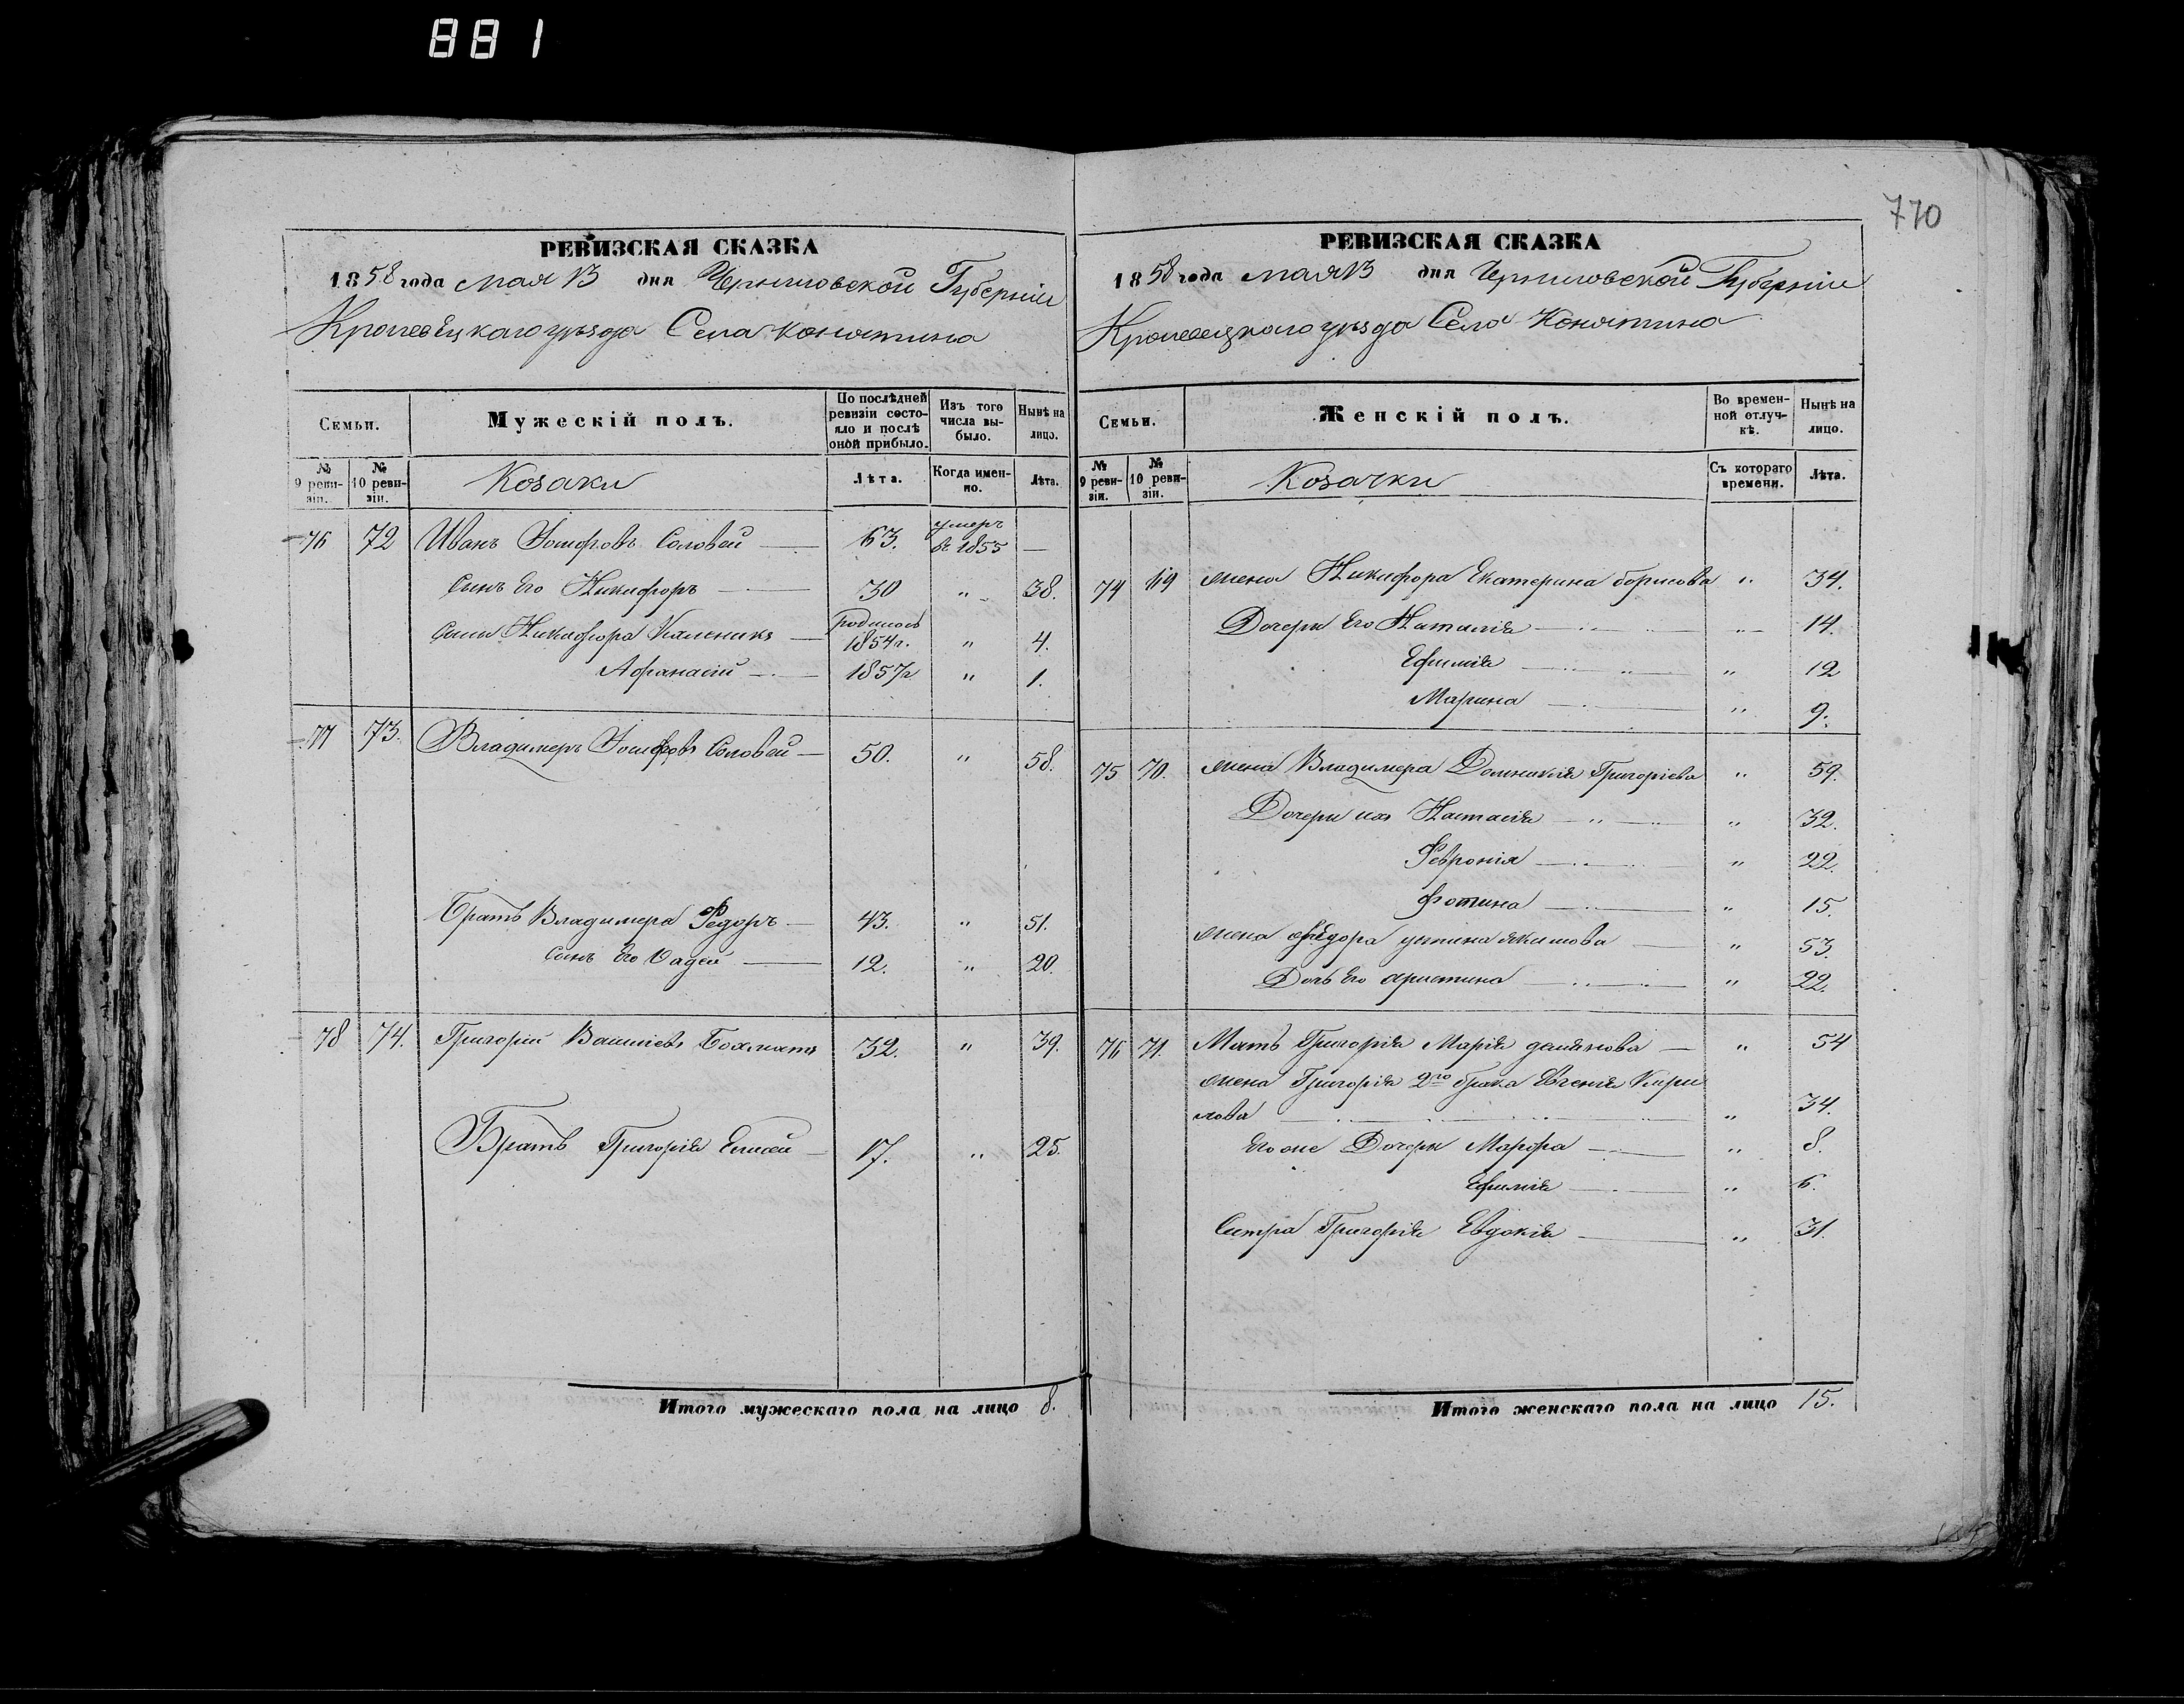 881
770
РЕВИЗСКАЯ СКАЗКА
1858 года мая 13 дня Черниговской Губерніи
Кролевецкаго уезда Села Конотина
Семьи.
Мужескій полъ.
По послѣдней ревизіи состояло и послѣ оной прибыло.
Изъ того числа выбыло.
Нынѣ на лицо.
№ 9 ревизіи.
№ 10 ревизіи.
Козаки
Лѣта.
Когда именно.
Лѣта.
76 72 Иванъ Іосифовъ Соловей — 63. умеръ въ 1855 —
Сынъ Его Никифоръ — 30 " 38.
Сыны Никифора Каленикъ — родился 1854г. " 4.
Афанасій — 1857г " 1.
77 73. Владимеръ Іосифовъ Соловей — 50. " 58.
Братъ Владимера Федоръ — 43. " 51.
Сынъ Его Фадей — 12. " 20.
78 74. Григорій Василіевъ 32. " 39.
Братъ Григорія Елисей — 17. " 25.
Итого мужескаго пола на лицо 8.
РЕВИЗСКАЯ СКАЗКА
1858 года мая 13 дня Черниговской Губерніи
Кролевецкаго уезда Села Конотина
Семьи.
Женскій полъ.
Во временной отлучкѣ.
Нынѣ на лицо.
№ 9 ревизіи.
№ 10 ревизіи.
Козачки
Съ котораго времени.
Лѣта.
74 69 жена Никифора Екатерина борисова " 34.
Дочери Его Наталія — " 14.
Ефимія — " 12
Марина — " 9.
75 70. жена Владимера Домникія Григоріева " 59.
Дочери ихъ Настасія — " 32.
Феврония — " 22.
Фотина — " 15.
жена Федора якимова — " 53.
Дочь Его христина — " 22.
76 71. Мать Григорія Марія демянова — " 54
жена Григорія 2го брака Евгенія Кири
лова — " 34.
Его же Дочери Марфа — " 8.
Ефимія — " 6.
Сестра Григорія Евдокія — " 31.
Итого женскаго пола на лицо 15.